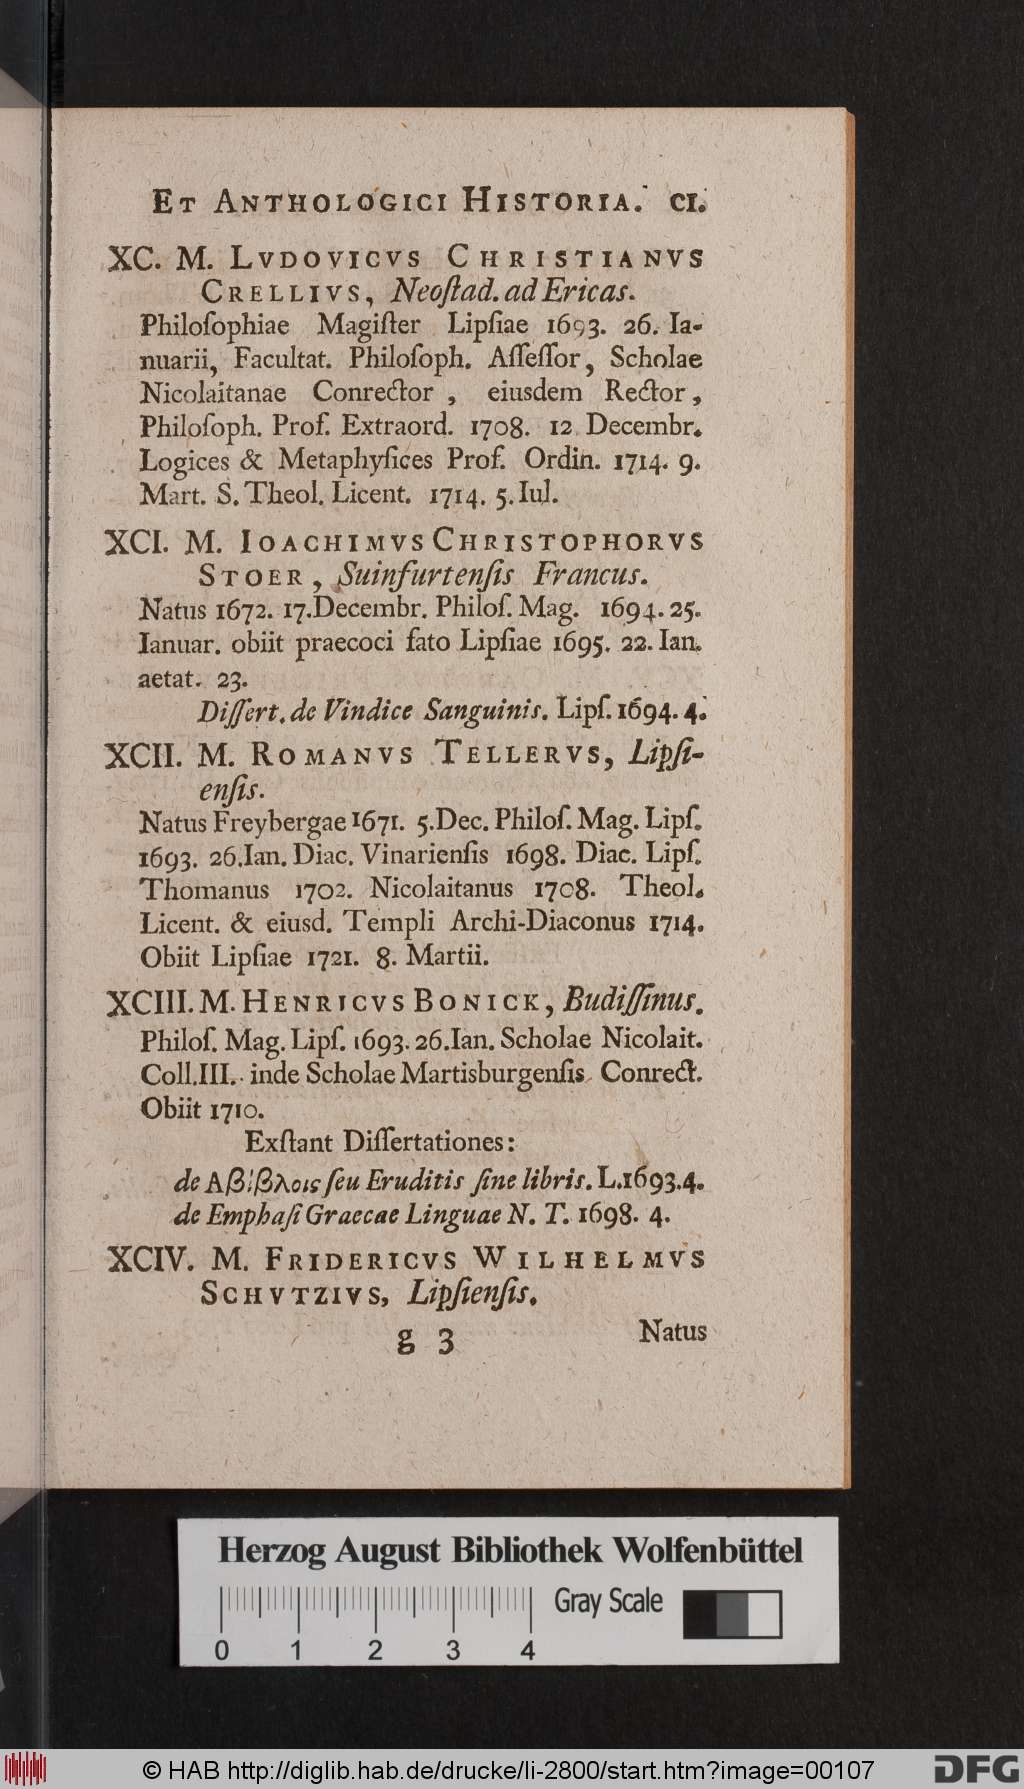 ET ANTHOLOGICI HISTORIA. CI.
XC. M. LVDOVICVS CHRISTIANVS
CRELLIVS, Neoſtad. ad Ericas.
Philoſophiae Magiſter Lipſiae 1693. 26. Ia-
nuarii, Facultat. Philoſoph. Aſſeſſor, Scholae
Nicolaitanae Conrector , eiusdem Rector,
Philoſoph. Prof. Extraord. 1708. 12 Decembr.
Logices & Metaphyſices Prof. Ordin. 1714. 9.
Mart. S. Theol. Licent. 1714. 5. Iul.
XCI. M. IOACHIMVS CHRISTOPHORVS
STOER, Suinfurtenſis Francus.
Natus 1672. 17. Decembr. Philoſ. Mag. 1694. 25.
Ianuar. obiit praecoci fato Lipſiae 1695. 22. Ian.
aetat. 23.
Diſſert. de Vindice Sanguinis. Lipſ. 1694. 4.
XCII. M. ROMANVS TELLERVS, Lipſi-
enſis.
Natus Freybergae 1671. 5. Dec. Philoſ. Mag. Lipſ.
1693. 26. Ian. Diac. Vinarienſis 1698. Diac. Lipſ.
Thomanus 1702. Nicolaitanus 1708. Theol.
Licent. & eiusd. Templi Archi-Diaconus 1714.
Obiit Lipſiae 1721. 8. Martii.
XCIII. M. HENRICVS BONICK, Budiſſinus.
Philoſ. Mag. Lipſ. 1693. 26. Ian. Scholae Nicolait.
Coll. III. inde Scholae Martisburgenſis Conrect.
Obiit 1710.
Exſtant Diſſertationes:
de Αβίβλοις ſeu Eruditis ſine libris. L. 1693. 4.
de Emphaſi Graecae Linguae N. T. 1698. 4.
XCIV. M. FRIDERICVS WILHELMVS
SCHVTZIVS, Lipſienſis.
g 3 Natus
Herzog August Bibliothek Wolfenbüttel
Gray Scale
0 1 2 3 4
© HAB http://diglib.hab.de/drucke/li-2800/start.htm?image=00107
DFG